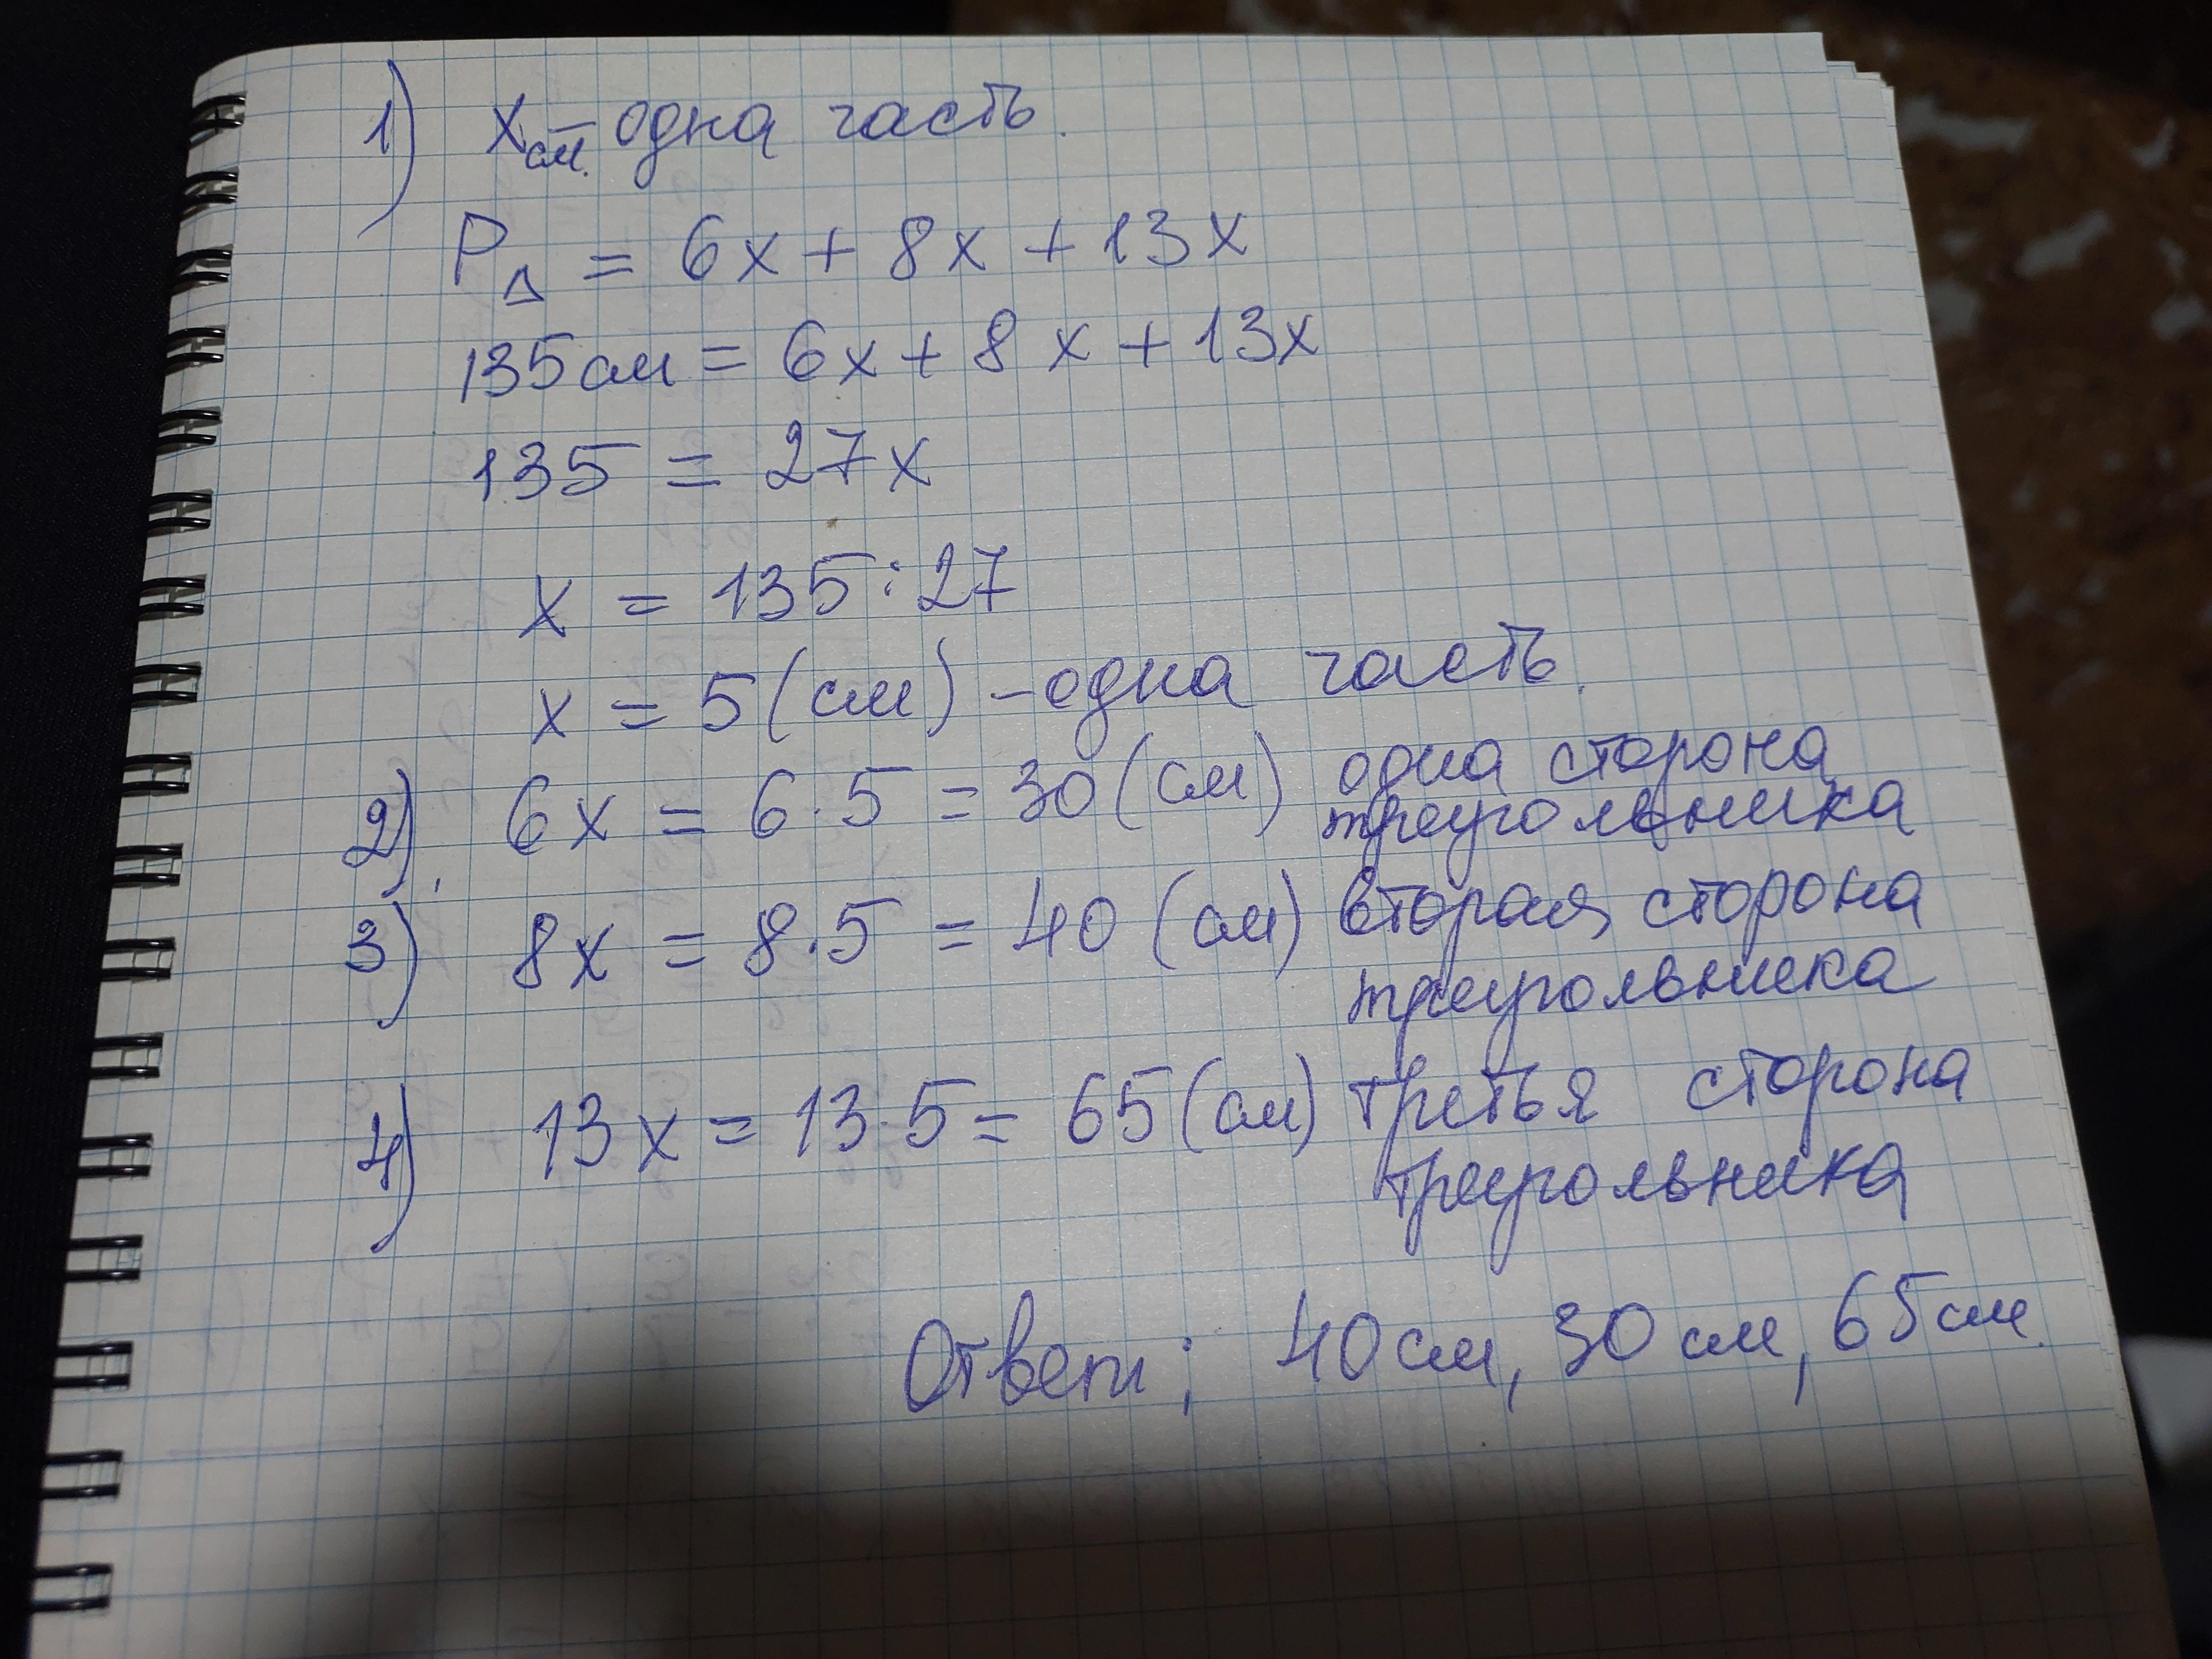 1) x см. – одна часть.
P△ = 6x + 8x + 13x
135 см = 6x + 8x + 13x
135 = 27x
x = 135 : 27
x = 5 (см) – одна часть.
2) 6x = 6 · 5 = 30 (см) одна сторона
треугольника
3) 8x = 8 · 5 = 40 (см) вторая сторона
треугольника
4) 13x = 13 · 5 = 65 (см) третья сторона
треугольника
Ответ; 40 см, 30 см, 65 см.